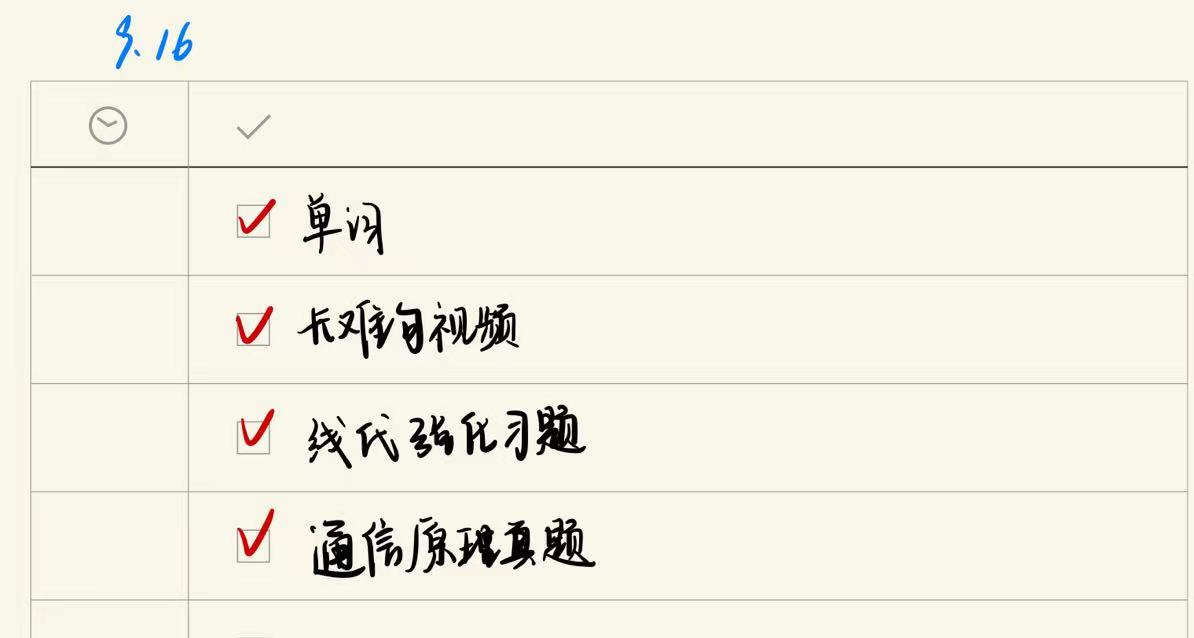 9.16
单词
长难句视频
线代强化习题
通信原理真题